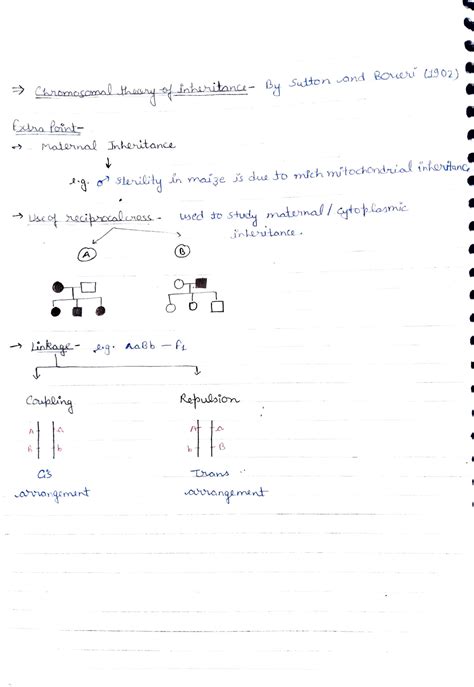 ⇒ Chromosomal theory of inheritance - By Sutton and Boveri (1902)
Extra Point -
→ Maternal Inheritance
↓
e.g. ♂ sterility in maize is due to mich mitochondrial inheritanc
→ Use of reciprocal cross - used to study maternal / cytoplasmic
inheritance.
A B
→ Linkage - e.g. AaBb – F1
Coupling Repulsion
A a A a
B b b B
Cis Trans
arrangement arrangement